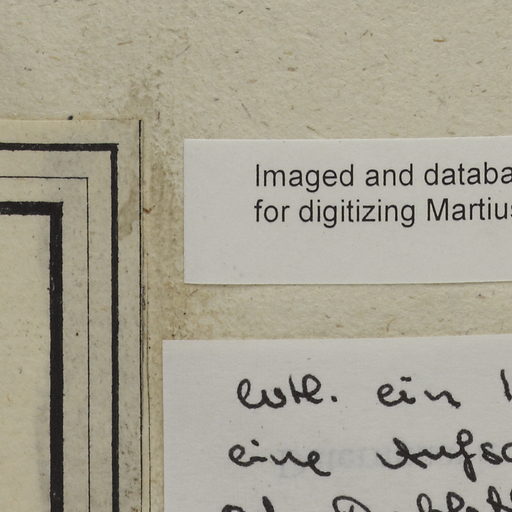 Imaged and databa
for digitizing Martius
evtl. ein
eine Aufsc